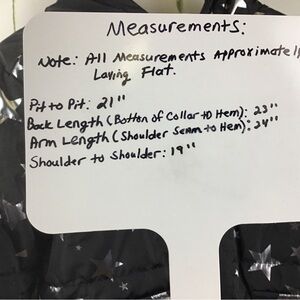 Measurements:
Note: All Measurements Approximately
Laying Flat.
Pit to Pit: 21"
Back Length (Botton of Collar to Hem): 23"
Arm Length (Shoulder Seam to Hem): 24"
Shoulder to Shoulder: 19"